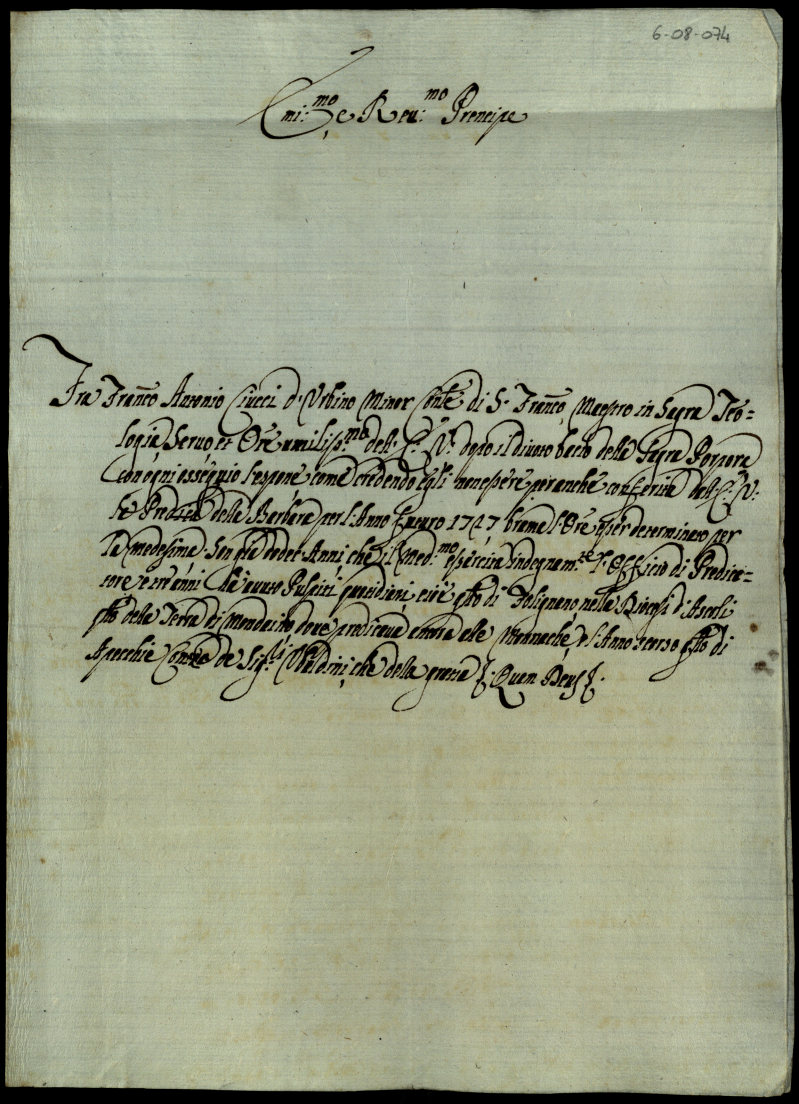 6-08-074
Emi:mo e Reu:mo Prencipe
Fra Franco Antonio Ciucci d'Urbino Minor Conle di S. Franco, Maestro in Sagra Teo=
logia, Seruo, et Ore umilissmo dell' E. V. dopo il diuoto bacio della Sagra Porpora
con ogni ossequio l'espone come credendo egli non essere per anche conferita dall' E. V.
la Predica della Barbara per l'Anno futuro 1727 brama l'Ore esser determinato per
la medesima. Son già dodeci Anni, che il med:mo essercita indegnam:te l'Officio di Predica=
tore, e tre anni hà auuto Pulpiti quotidiani, cioè qllo di Folignano nella Diocesi d'Ascoli
qllo della Terra di Mondauio doue predicaua ancora alle Monache, e l'Anno scorso qllo di
Apecchie Contea de Sig:ri Vbaldini, che della grazia &. Quam Deus &.